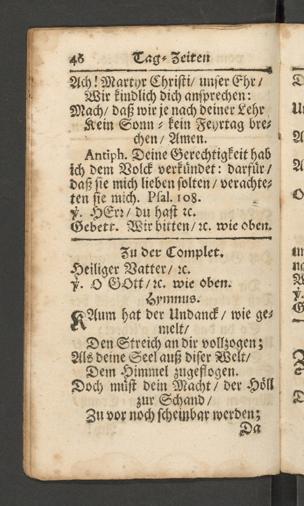 46 Tag-Zeiten
Ach! Martyr Christi/ unser Ehr/
Wir kindlich dich ansprechen:
Mach/ daß wir je nach deiner Lehr
Kein Sonn-kein Feyrtag bre-
chen/ Amen.
Antiph. Deine Gerechtigkeit hab
ich dem Volck verkündet: darfür/
daß sie mich lieben solten/ verachte-
ten sie mich. Psal. 108.
℣. HErr/ du hast ꝛc.
Gebett. Wir bitten/ ꝛc. wie oben.
Zu der Complet.
Heiliger Vatter/ ꝛc.
℣. O GOtt/ ꝛc. wie oben.
Hymnus.
KAum hat der Undanck/ wie ge-
melt/
Den Streich an dir vollzogen;
Als deine Seel auß diser Welt/
Dem Himmel zugeflogen.
Doch müst dein Macht/ der Höll
zur Schand/
Zu vor noch scheinbar werden;
Da